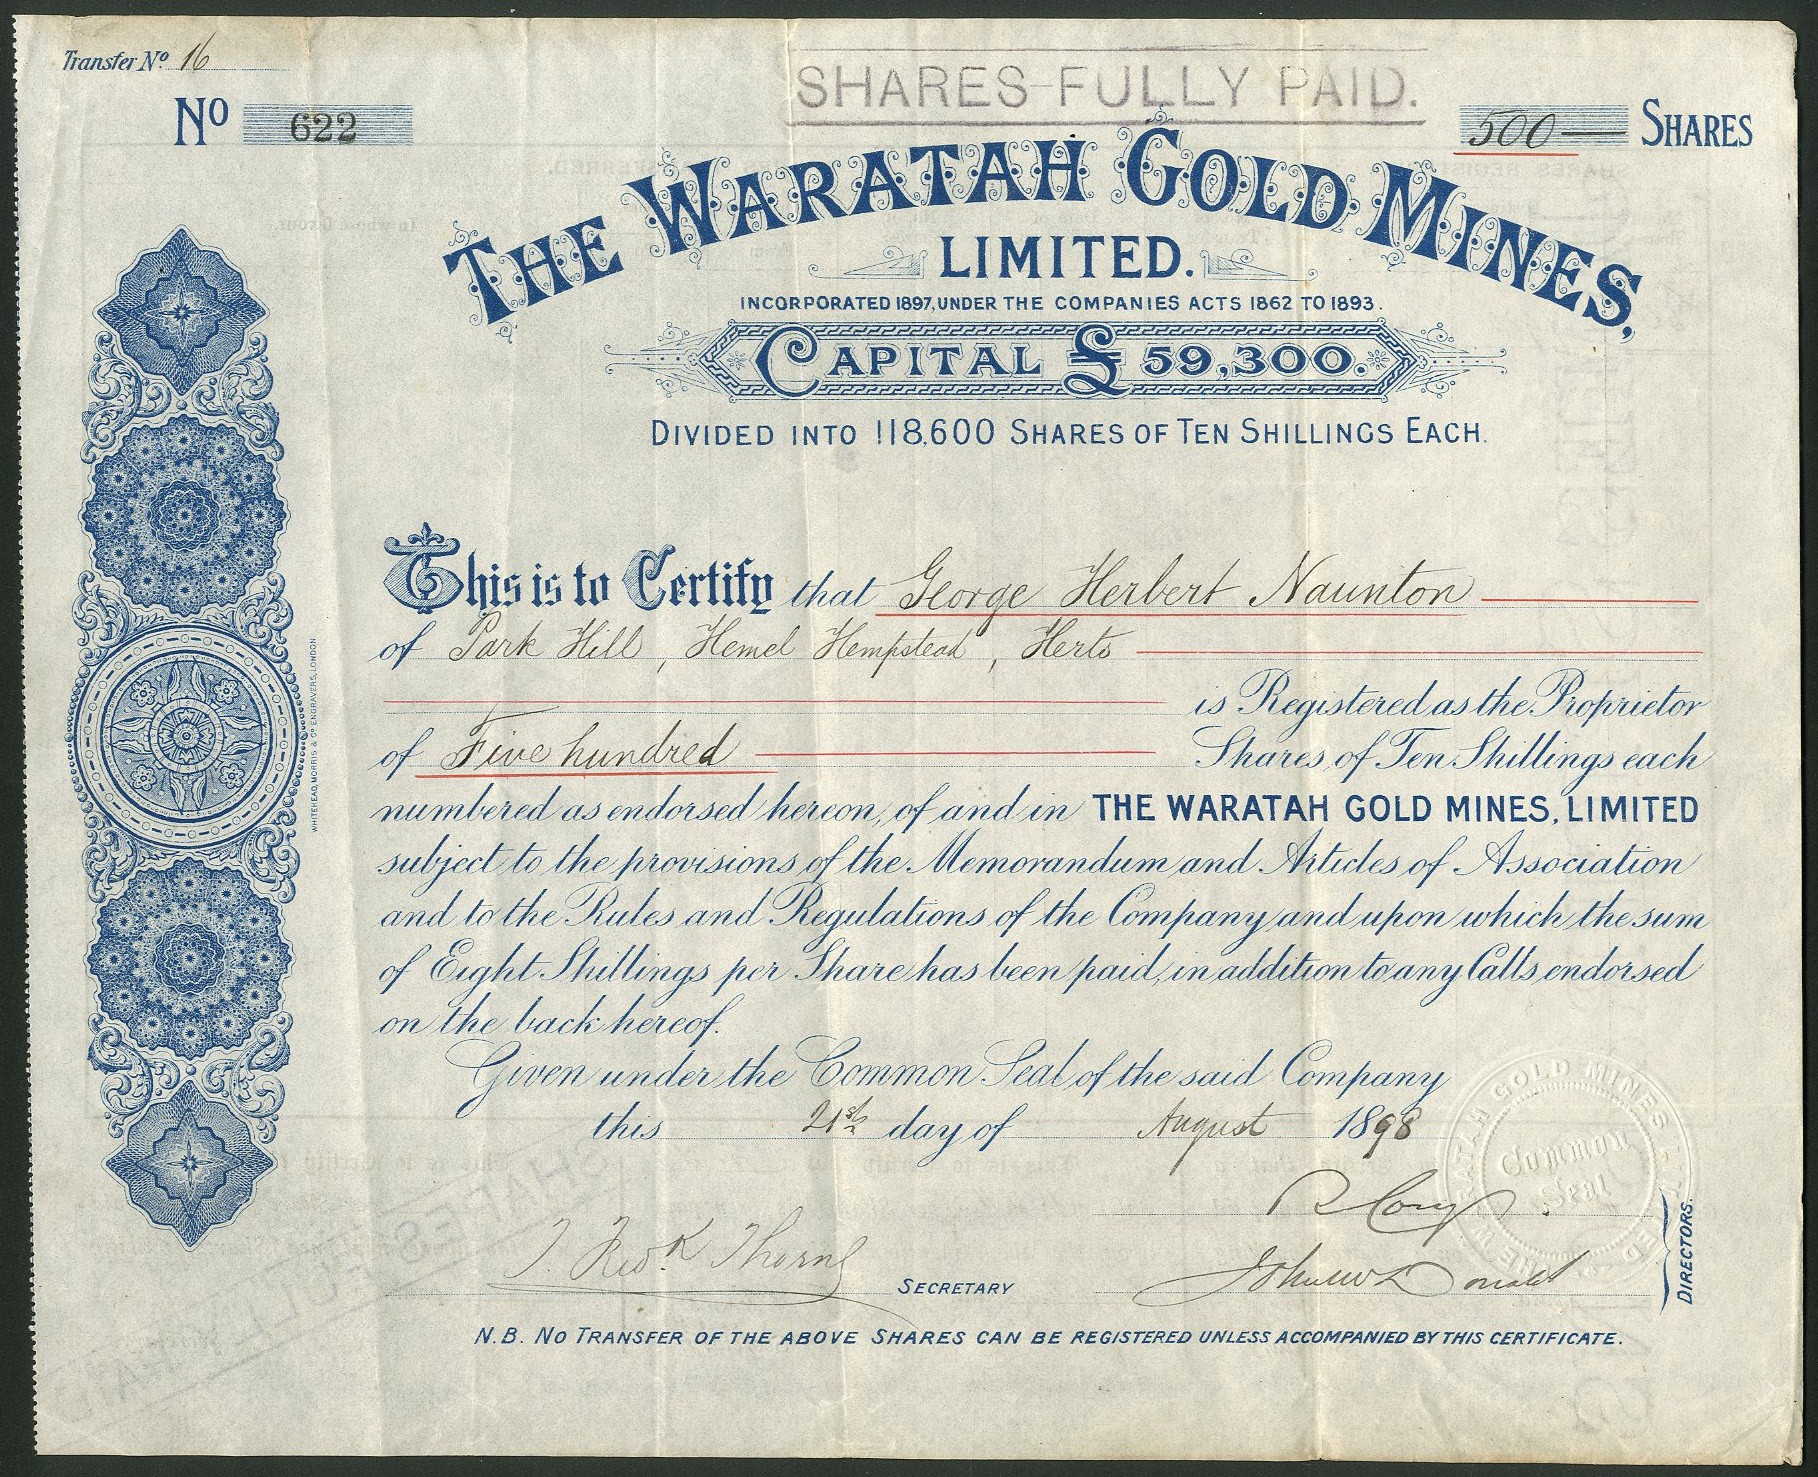 Transfer No 16
SHARES FULLY PAID.
No 622
500 SHARES
THE WARATAH GOLD MINES,
LIMITED.
INCORPORATED 1897, UNDER THE COMPANIES ACTS 1862 TO 1893.
CAPITAL £59,300.
DIVIDED INTO 118,600 SHARES OF TEN SHILLINGS EACH.
This is to Certify that George Herbert Naunton
of Park Hill, Hemel Hempstead, Herts
is Registered as the Proprietor
of Five hundred Shares of Ten Shillings each
numbered as endorsed hereon, of and in THE WARATAH GOLD MINES, LIMITED
subject to the provisions of the Memorandum and Articles of Association
and to the Rules and Regulations of the Company and upon which the sum
of Eight Shillings per Share has been paid, in addition to any Calls endorsed
on the back hereof.
Given under the Common Seal of the said Company
this 21st day of August 1898
R Cory
T. Fredk Thorne
SECRETARY
DIRECTORS.
N.B. NO TRANSFER OF THE ABOVE SHARES CAN BE REGISTERED UNLESS ACCOMPANIED BY THIS CERTIFICATE.
WHITEHEAD, MORRIS & Co ENGRAVERS, LONDON
THE WARATAH GOLD MINES LIMITED
Common
Seal